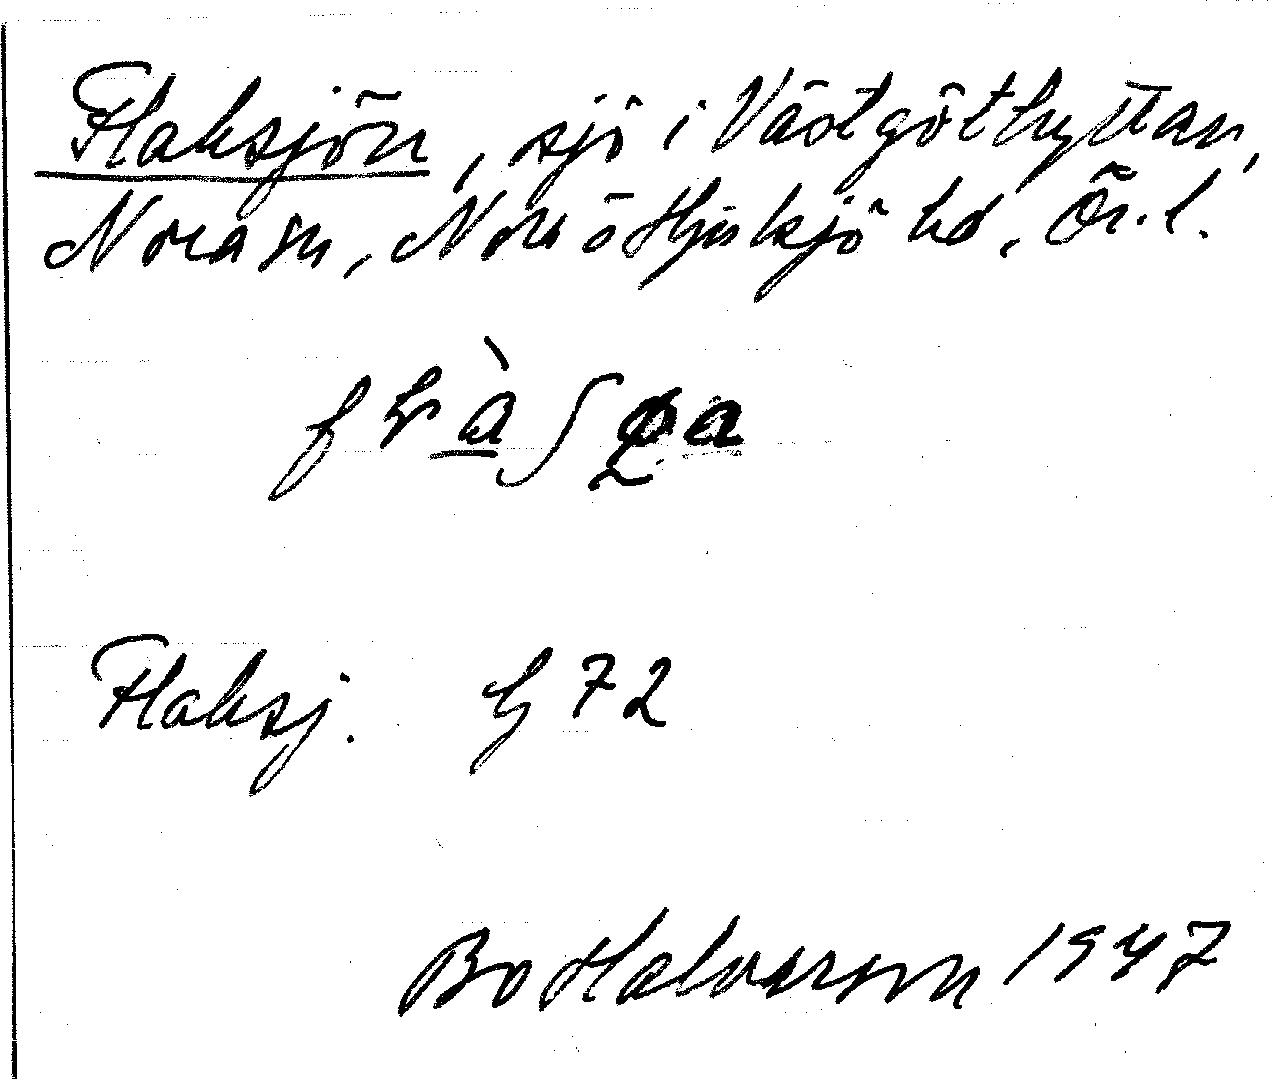 Flaksjön, sjö i Västgöthyttan,
Nora sn, Nora o Hjulsjö hd, Ör. l.
Flaksj. G 72
Bo Halvarson 1947